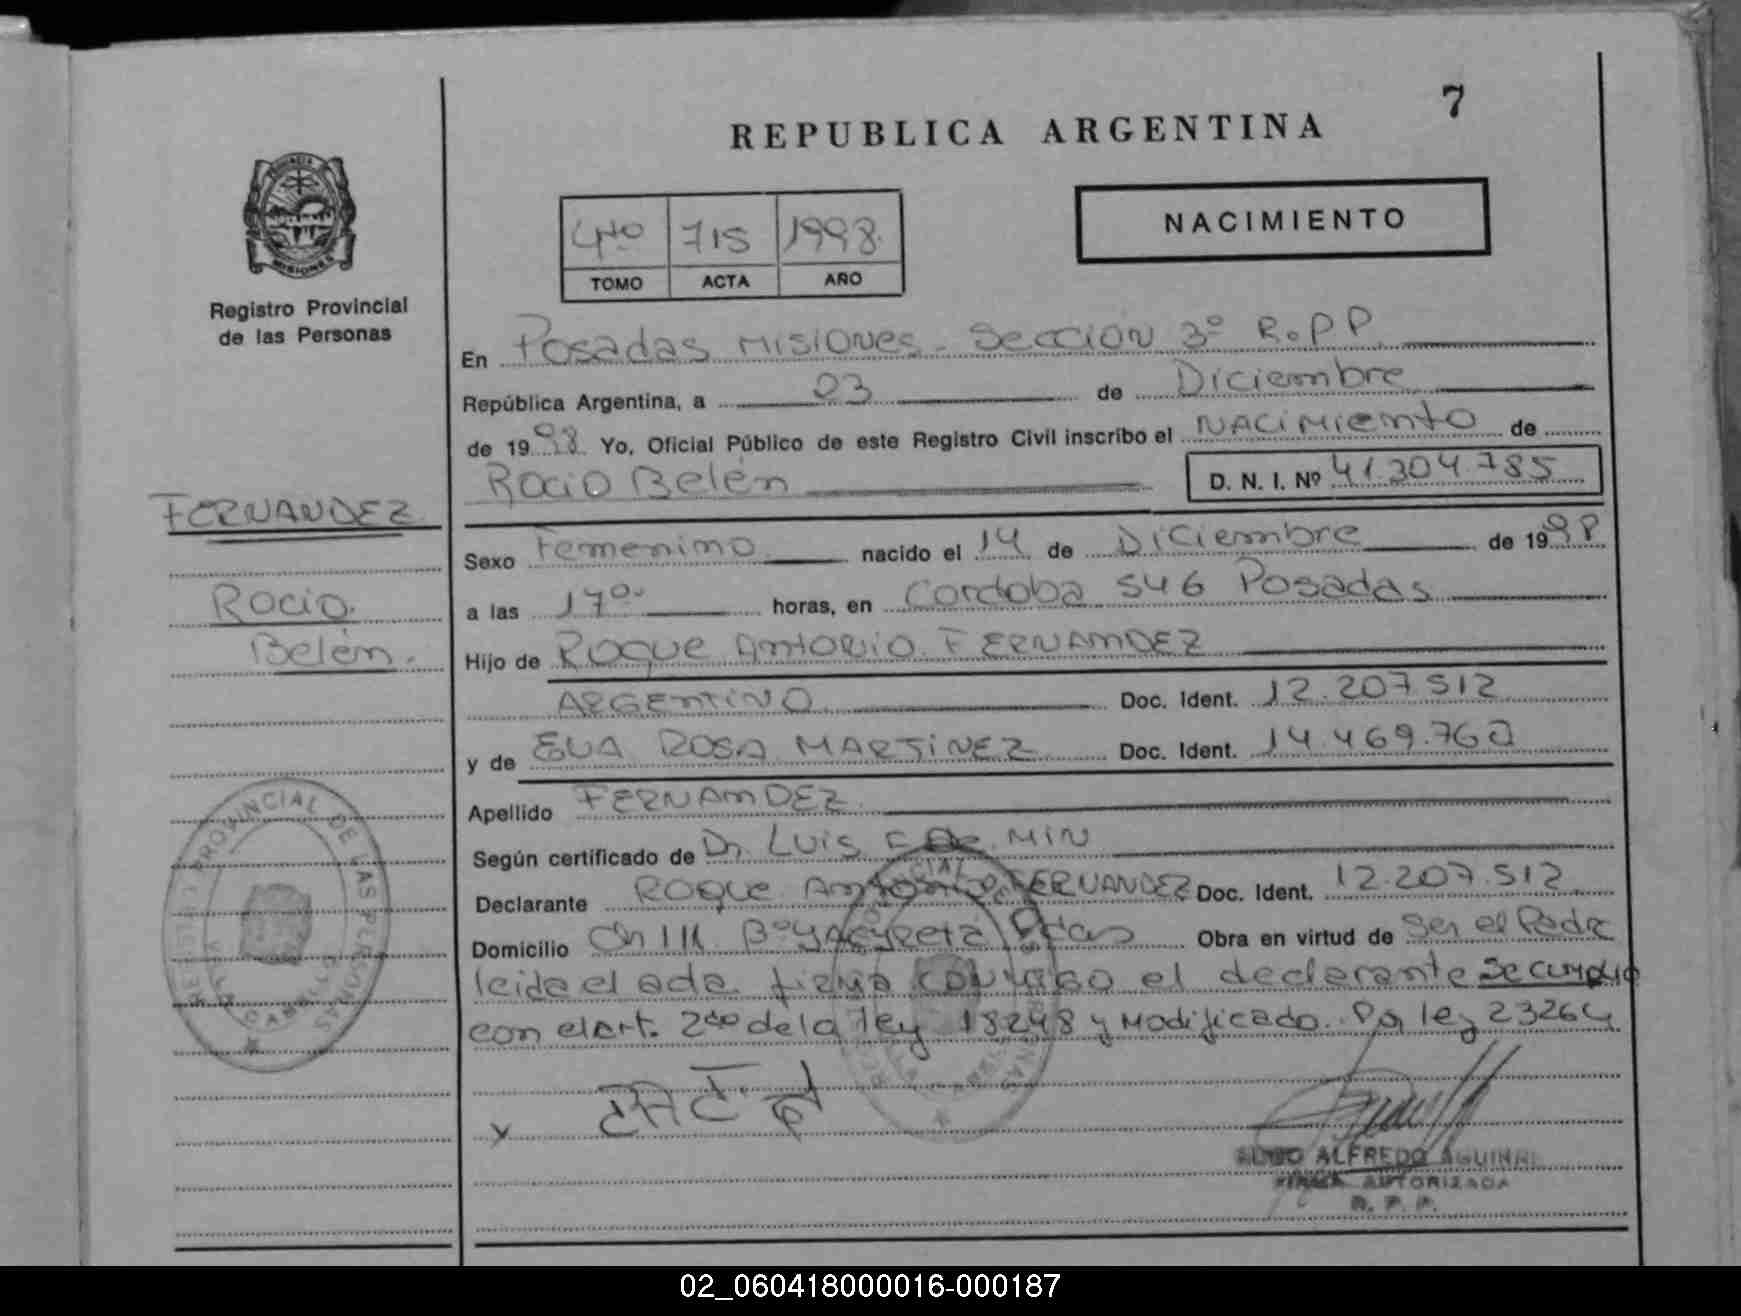 7
REPUBLICA ARGENTINA
NACIMIENTO
4to 715 1998.
TOMO ACTA AÑO
PROVINCIA
MISIONES
Registro Provincial
de las Personas
En Posadas Misiones. Sección 3º R.P.P.
República Argentina, a 03 de Diciembre
de 1998 Yo, Oficial Público de este Registro Civil inscribo el Nacimiento de
Rocio Belén D. N. I. Nº 41.304.785
FERNANDEZ
Rocio.
Belén.
Sexo Femenino nacido el 14 de Diciembre de 1998
a las 17º. horas, en Cordoba 546 Posadas
Hijo de Roque Antonio FERNANDEZ
ARGENTINO Doc. Ident. 12.207.512
y de EVA ROSA MARTINEZ Doc. Ident. 14.469.760
Apellido FERNANDEZ
Según certificado de Dr. Luis MIN
Declarante ROQUE Antonio FERNANDEZ Doc. Ident. 12.207.512
Domicilio Ch 111 Bº Yacyreta Pdas Obra en virtud de Ser el Padre
leida el acta firma conmigo el declarante Se cumplio
con el art. 2do de la ley 18248 y Modificado. Por ley 23264
x
ALFREDO AGUIRRE
FIRMA AUTORIZADA
R. P. P.
PROVINCIAL DE LAS PERSONAS
02_060418000016-000187